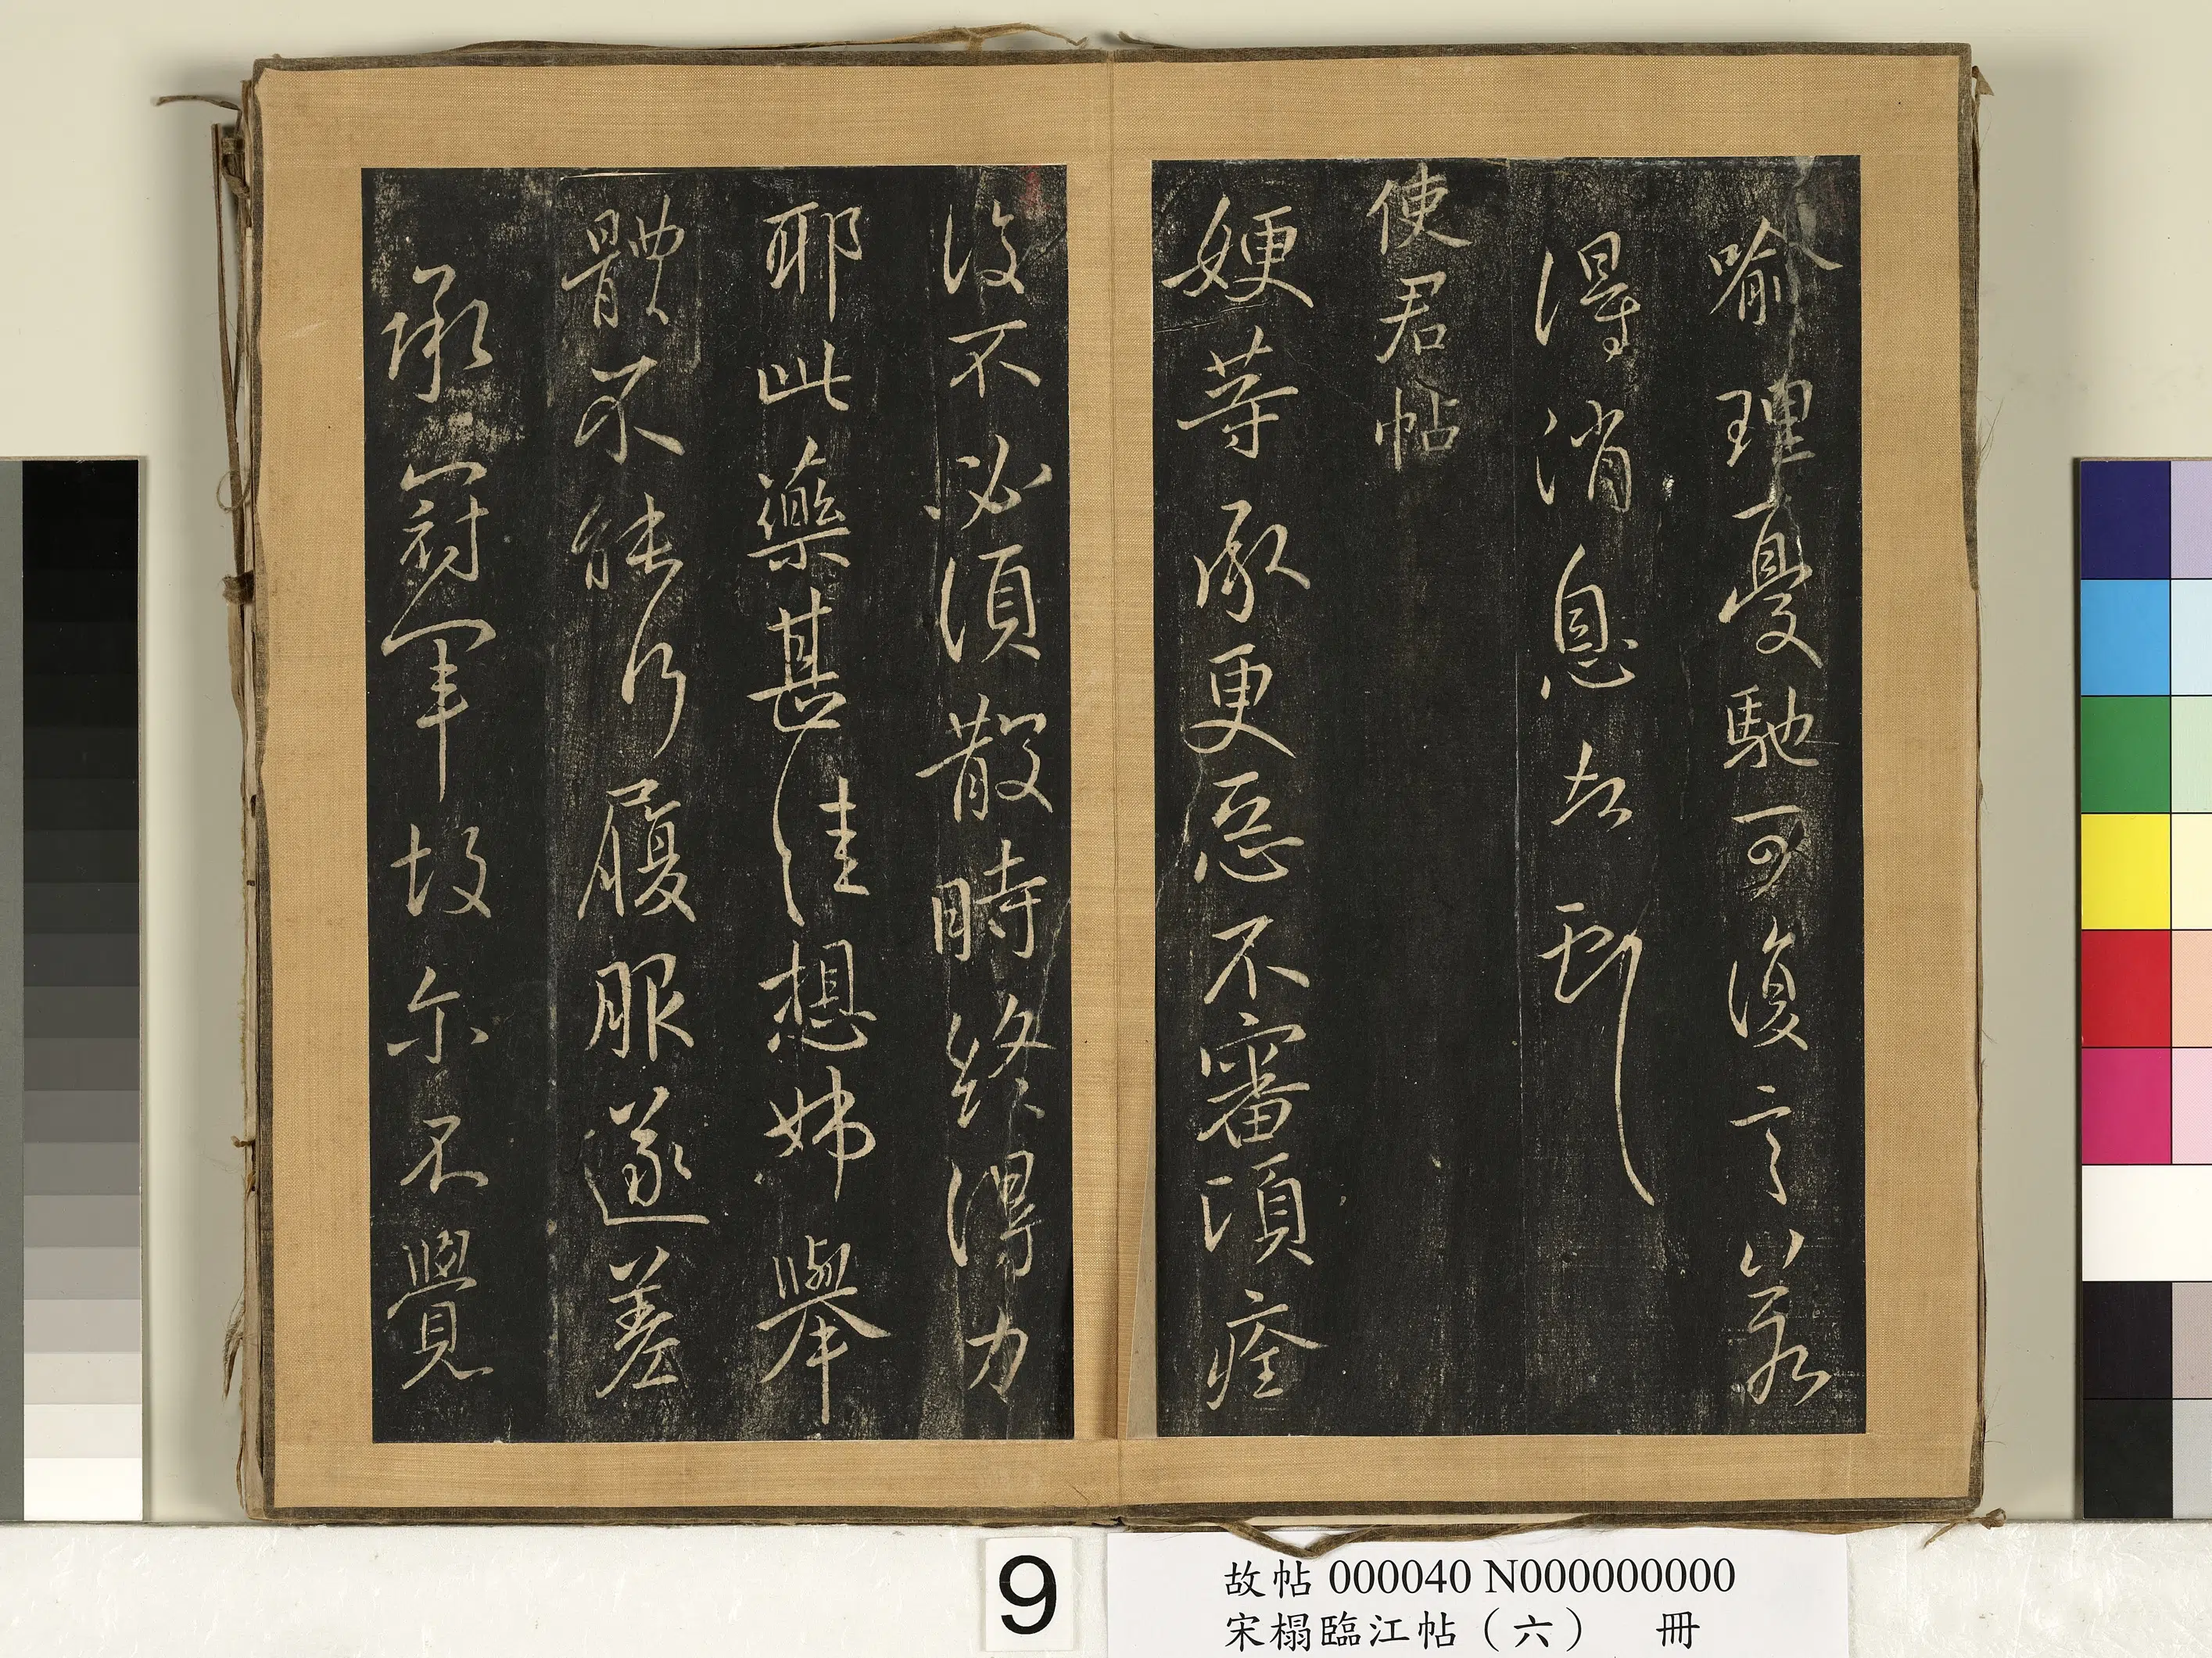 喻理憂馳可復言
得消息
使君帖
㛐等承更惡不審頃痊
後不必須散時終得力
耶此藥甚佳想姊舉
體不能行履服遂差
承冠軍故尓不覺
9
故帖 000040 N000000000
宋榻臨江帖（六） 冊